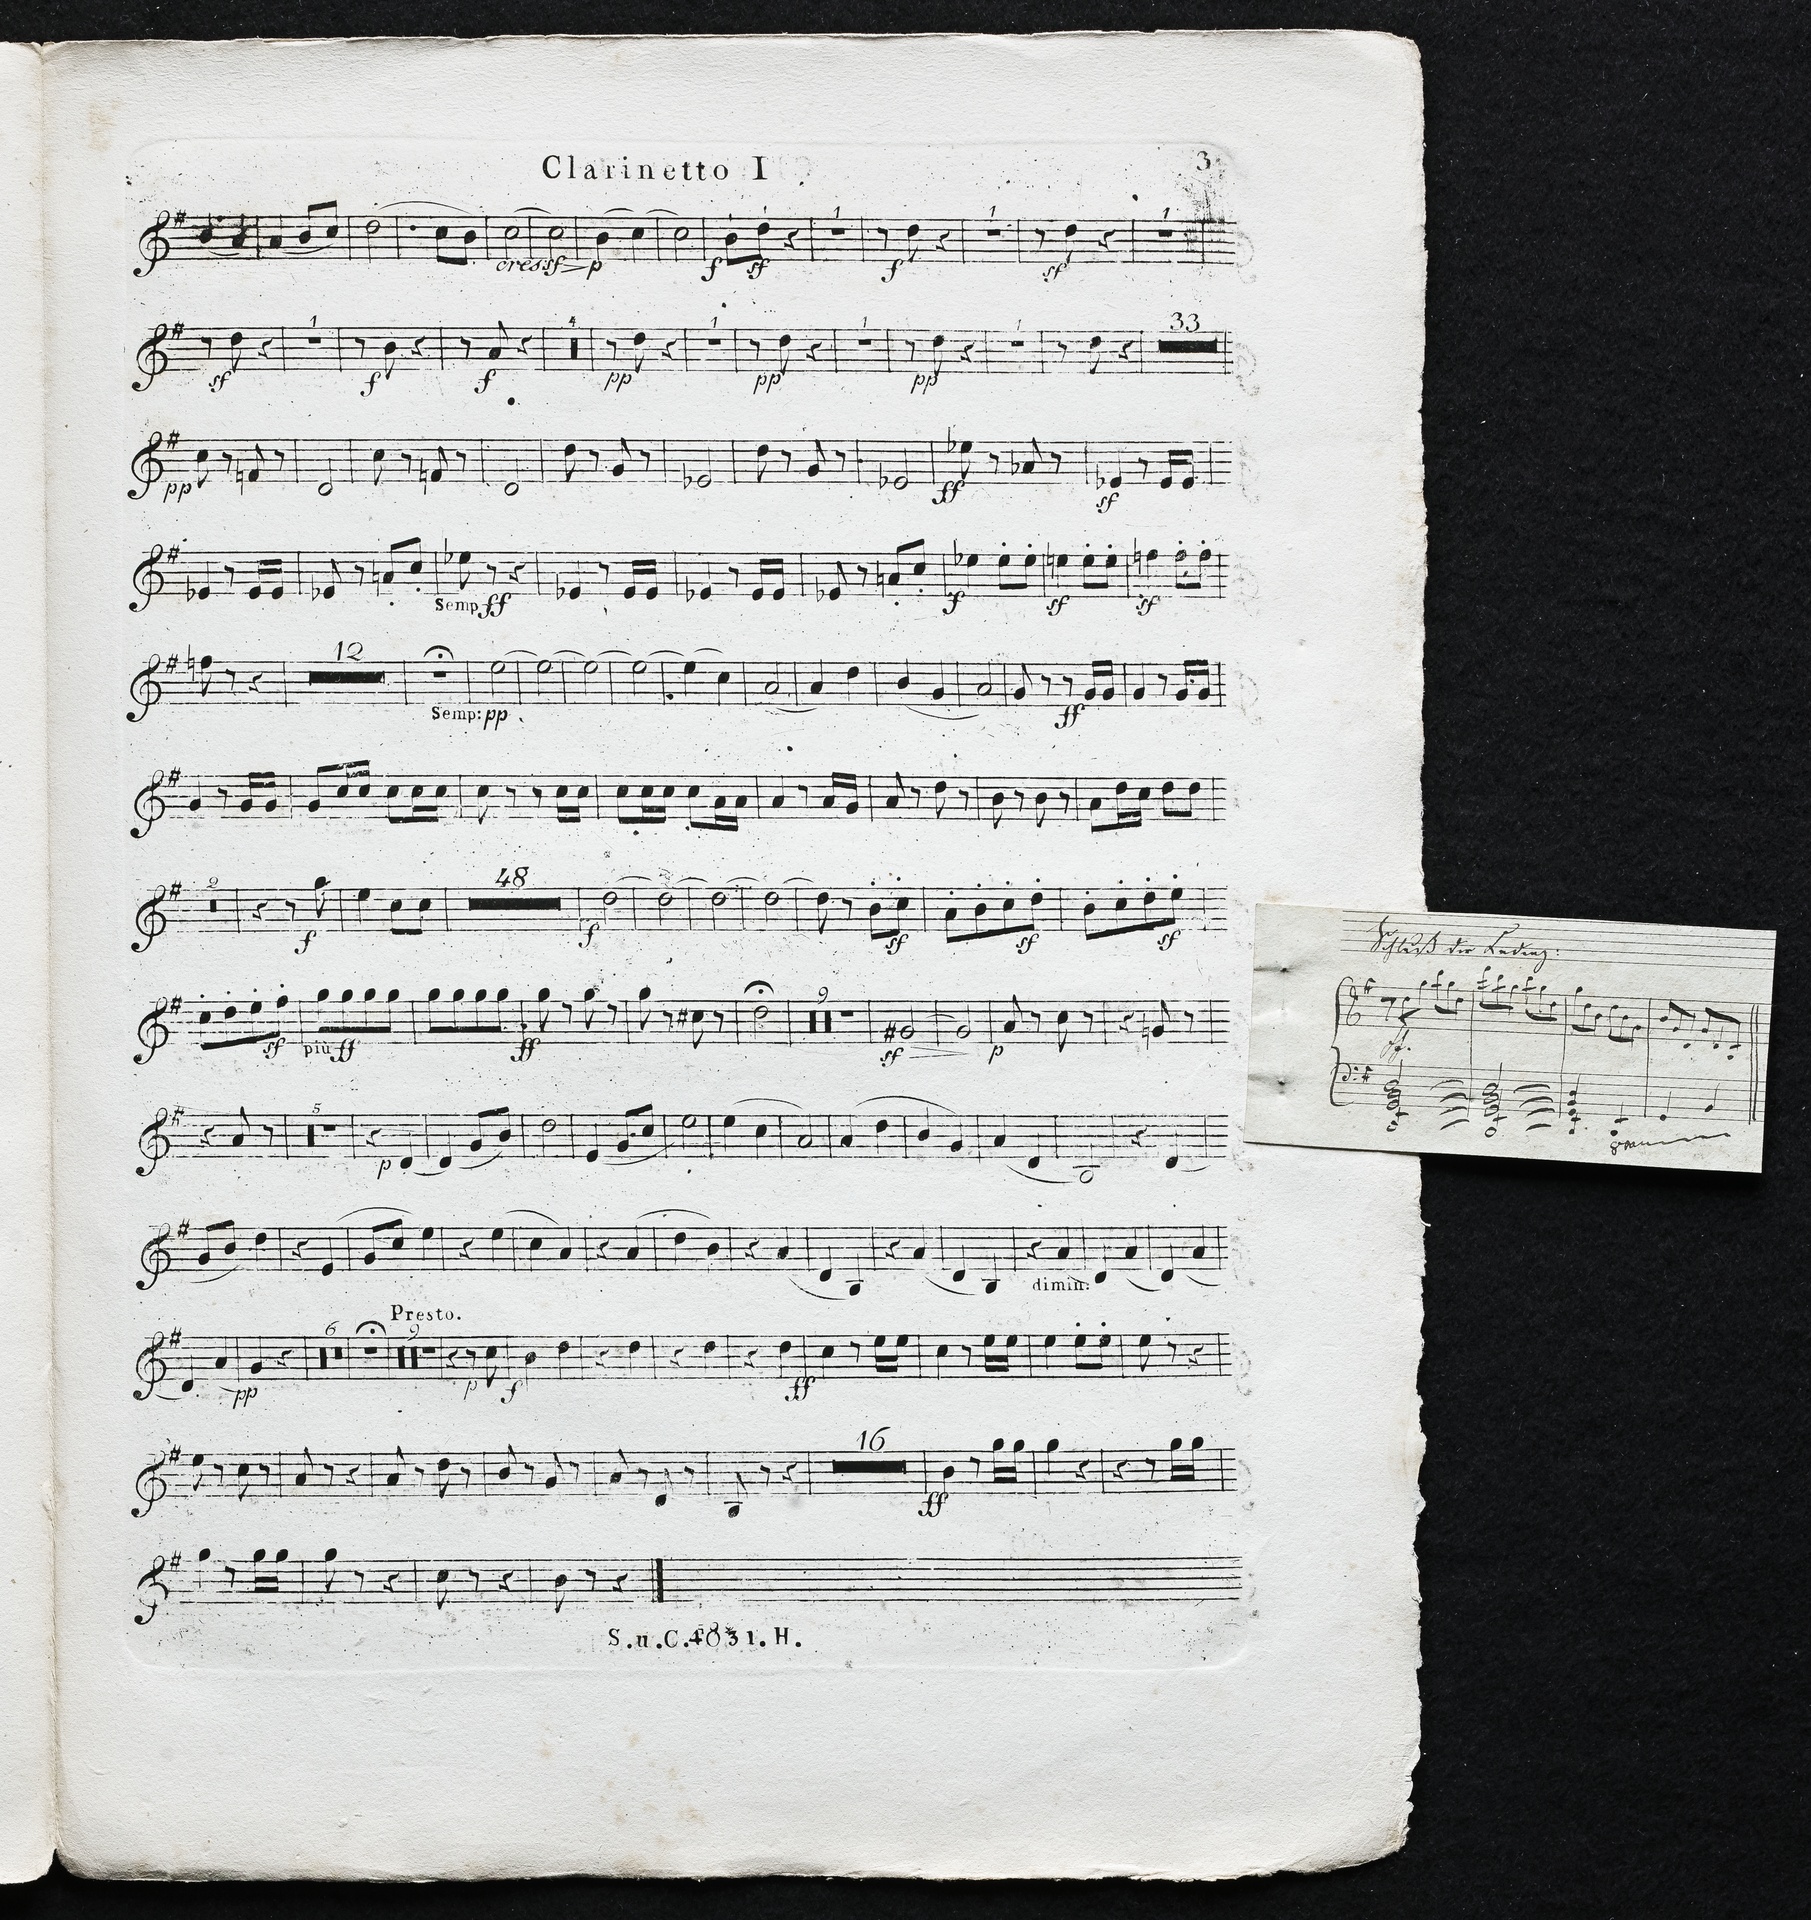 Clarinetto I
3
cres: sf p f sf f sf
1 1 1
sf f f pp pp pp
1 4 1 1 1 33
pp ff sf
Semp ff f sf sf
12
Semp: pp ff
2 48
f sf sf sf
9
sf più ff ff sf p
5
p
dimin:
Presto.
6 9
pp p f ff
16
ff
S.u.C.4831.H.
Schluß der Kadenz:
ff.